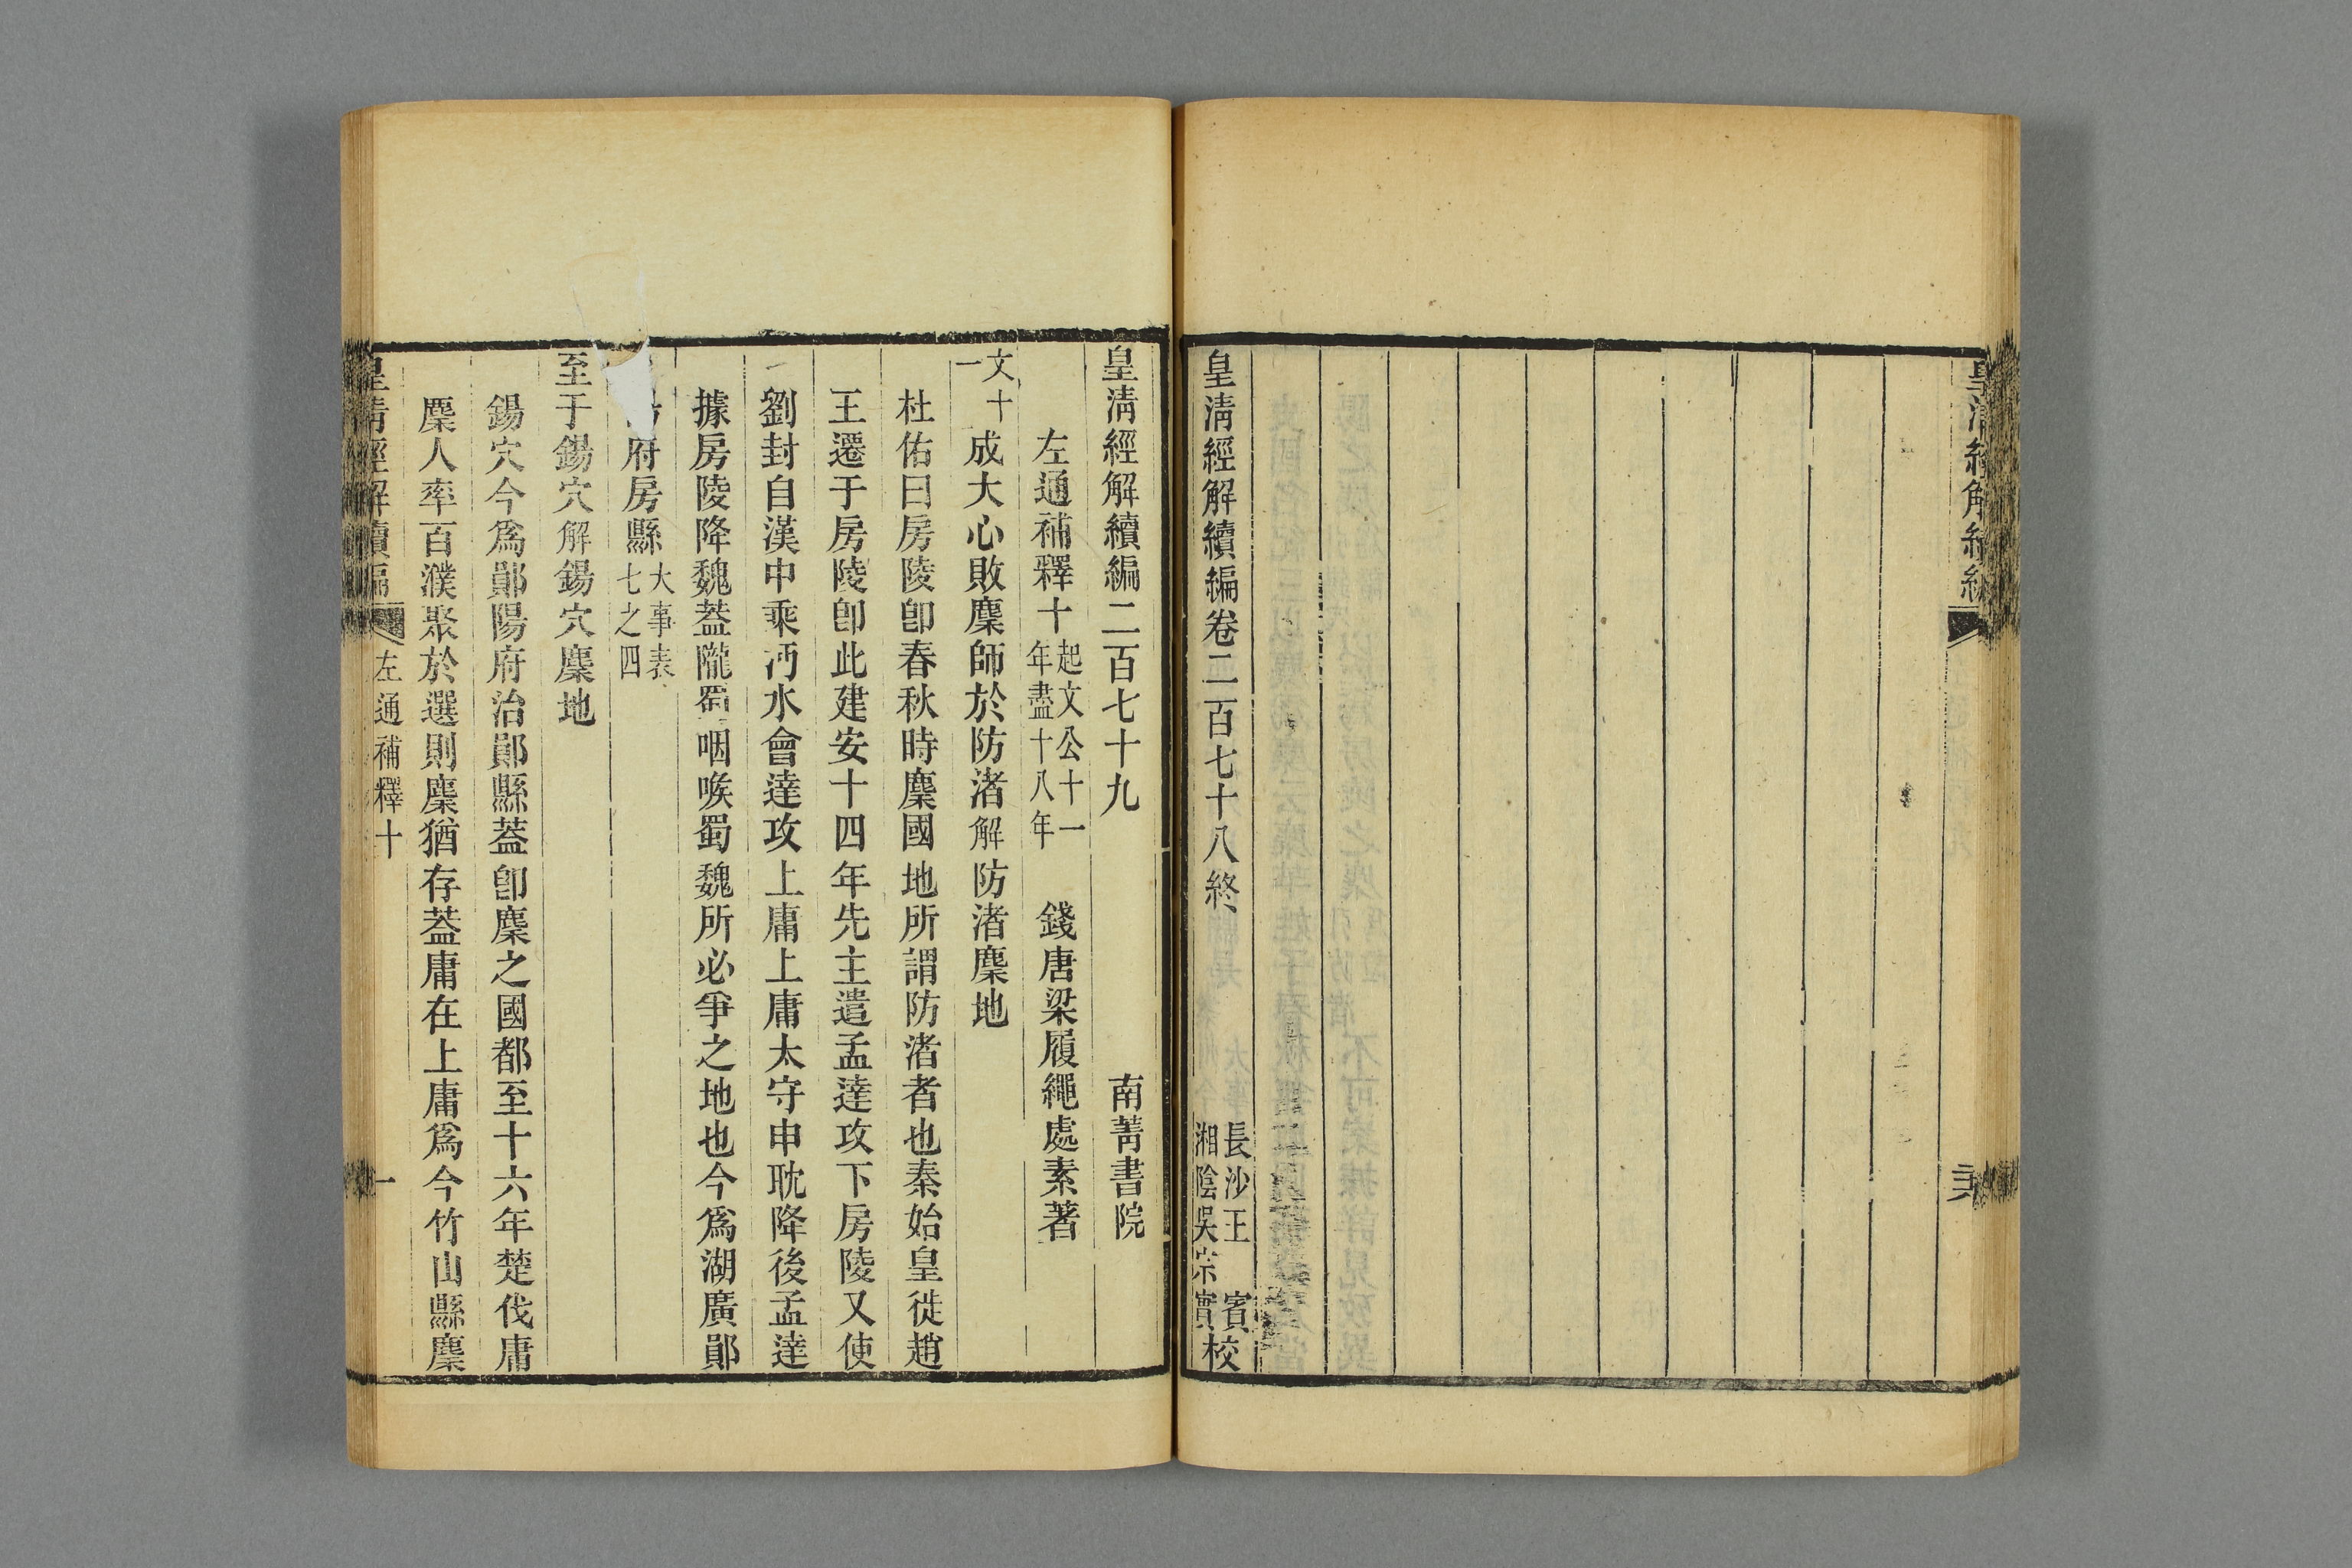 皇清經解續編卷二百七十八終
長沙王
賓
湘陰吳宗實校
皇清經解續編二百七十九
南菁書院
左通補釋十
起文公十一
年盡十八年
錢唐梁履繩處素著
文十
一
成大心敗麇師於防渚解防渚麇地
杜佑曰房陵卽春秋時麇國地所謂防渚者也秦始皇徙趙
王遷于房陵卽此建安十四年先主遣孟達攻下房陵又使
劉封自漢中乘沔水會達攻上庸上庸太守申耽降後孟達
據房陵降魏葢隴蜀咽喉蜀魏所必爭之地也今爲湖廣鄖
府房縣
大事表
七之四
至于鍚穴解鍚穴麇地
鍚穴今爲鄖陽府治鄖縣葢卽麇之國都至十六年楚伐庸
麇人率百濮聚於選則麇猶存葢庸在上庸爲今竹山縣麇
皇清經解續編
左通補釋十
一